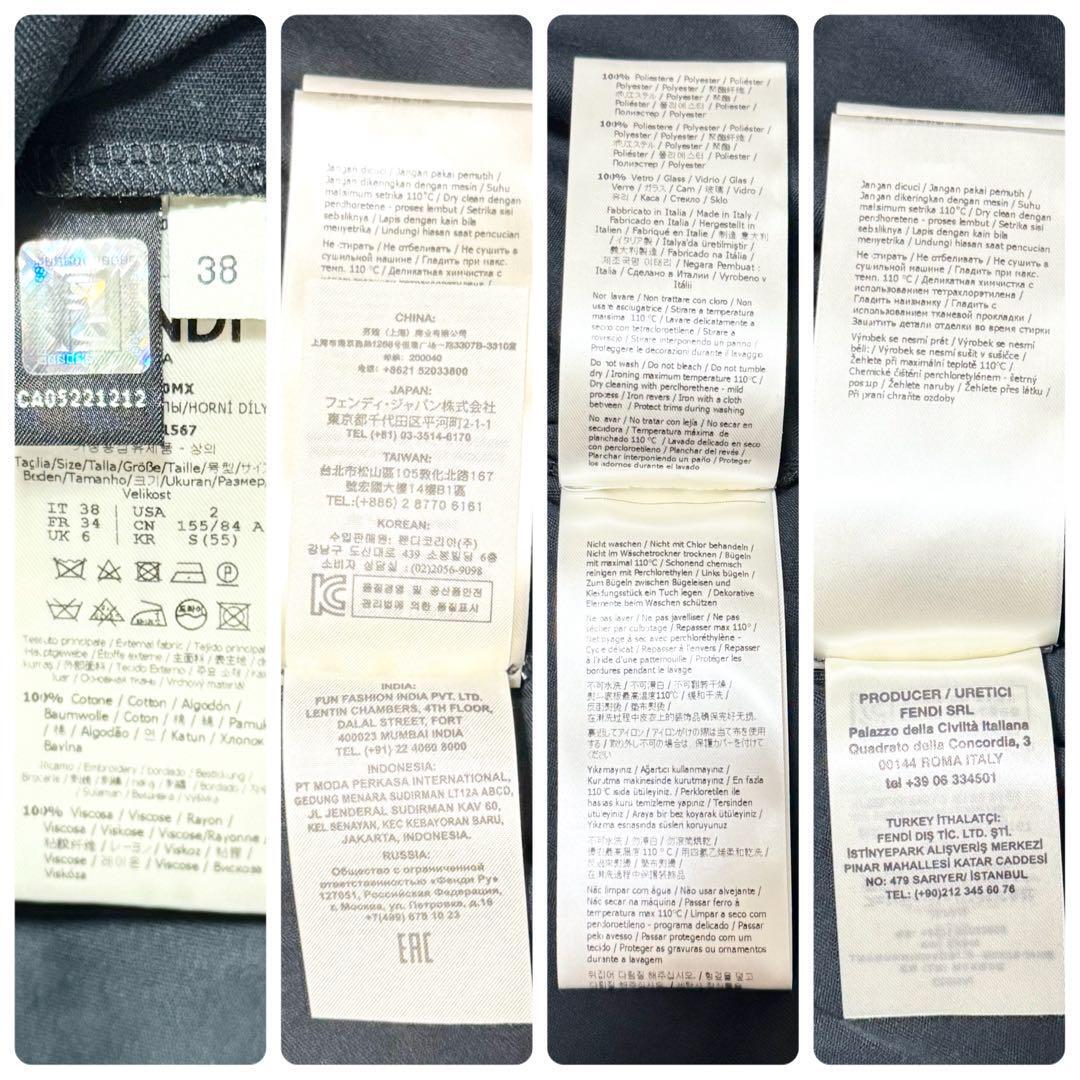 38
NDI
A
0MX
CA05221212
ПЫ/HORNÍ DÍLY
1567
가정용섬유제품 - 상의
Taglia/Size/Talla/Größe/Taille/
Beden/Tamanho/크기/Ukuran/Размер/
Velikost
IT 38 USA 2
FR 34 CN 155/84 A
UK 6 KR S(55)
Tessuto principale / External fabric / Tejido principal
Hauptgewebe / Étoffe externe / 主面料 / 表生地 /
kumaş / 外部面料 / Tecido Externo / 주요 소재 /
luar / Основная ткань / Vrchový materiál
100% Cotone / Cotton / Algodón /
Baumwolle / Coton / 棉 / 綿 / Pamuk
/ 棉 / Algodão / 면 / Katun / Хлопок
Bavlna
Ricamo / Embroidery / bordado / Bestickung /
100% Viscosa / Viscose / Rayon /
Viscosa / Viskose / Viscose/Rayonne
粘膠纖維 / レーヨン / Viskoz / 粘膠 /
Viscose / 레이온 / Viscosa / Вискоза
Viskóza
Jangan dicuci / Jangan pakai pemutih /
Jangan dikeringkan dengan mesin / Suhu
maksimum setrika 110°C / Dry clean dengan
perchloretene - proses lembut / Setrika sisi
sebaliknya / Lapis dengan kain bila
menyetrika / Undungi hiasan saat pencucian
Не стирать / Не отбеливать / Не сушить в
сушильной машине / Гладить при макс.
темп. 110 °C / Деликатная химчистка с
CHINA:
上海市南京西路1266号恒隆广场一期3307B-3310室
邮编: 200040
电话: +8621 52033800
JAPAN:
フェンディ・ジャパン株式会社
東京都千代田区平河町2-1-1
TEL (+81) 03-3514-6170
TAIWAN:
台北市松山區105敦化北路167
號宏國大樓14樓B1區
TEL:(+886) 2 8770 6161
KOREAN:
수입판매원: 펜디코리아(주)
강남구 도산대로 439 소봉빌딩 6층
소비자 상담실 : (02)2056-9098
품질경영 및 공산품안전
관리법에 의한 품질표시
INDIA:
FUN FASHION INDIA PVT. LTD.
LENTIN CHAMBERS, 4TH FLOOR,
DALAL STREET, FORT
400023 MUMBAI INDIA
TEL. (+91) 22 4066 8000
INDONESIA:
PT MODA PERKASA INTERNATIONAL,
GEDUNG MENARA SUDIRMAN LT12A ABCD,
JL JENDERAL SUDIRMAN KAV 60,
KEL SENAYAN, KEC KEBAYORAN BARU,
JAKARTA, INDONESIA.
RUSSIA:
Общество с ограниченной
ответственностью «Фенди Ру»
127051, Российская Федерация,
г. Москва, ул. Петровка, д.16
+7(499) 678 10 23
EAC
100% Poliestere / Polyester / Poliéster /
Polyester / Polyester / 聚酯纤维 /
ポリエステル / Polyester / 聚酯 /
Poliéster / 폴리에스터 / Poliester /
Полиэстер / Polyester
100% Poliestere / Polyester / Poliéster /
Polyester / Polyester / 聚酯纤维 /
ポリエステル / Polyester / 聚酯 /
Poliéster / 폴리에스터 / Poliester /
Полиэстер / Polyester
100% Vetro / Glass / Vidrio / Glas /
Verre / ガラス / Cam / 玻璃 / Vidro /
유리 / Kaca / Стекло / Sklo
Fabbricato in Italia / Made in Italy /
Fabricado en Italia / Hergestellt in
Italien / Fabriqué en Italie / 制造 意大利
/ イタリア製 / Italya'da üretilmiştir /
義大利製 / Fabricado na Itália /
제조국명 이태리 / Negara Pembuat :
Italia / Сделано в Италии / Vyrobeno v
Itálii
Non lavare / Non trattare con cloro / Non
usare asciugatrice / Stirare a temperatura
massima 110°C / Lavare delicatamente a
secco con tetracloroetilene / Stirare a
rovescio / Stirare interponendo un panno /
Proteggere le decorazioni durante il lavaggio
Do not wash / Do not bleach / Do not tumble
dry / Ironing maximum temperature 110°C /
Dry cleaning with perchlorethene - mild
process / Iron revers / Iron with a cloth
between / Protect trims during washing
No lavar / No tratar con lejía / No secar en
secadora / Temperatura máxima de
planchado 110°C / Lavado delicado en seco
con percloroetileno / Planchar del revés /
Planchar interponiendo un paño / Proteger
los adornos durante el lavado
Nicht waschen / Nicht mit Chlor behandeln /
Nicht im Wäschetrockner trocknen / Bügeln
mit maximal 110°C / Schonend chemisch
reinigen mit Perchlorethylen / Links bügeln /
Zum Bügeln zwischen Bügeleisen und
Kleidungsstück ein Tuch legen / Dekorative
Elemente beim Waschen schützen
Ne pas laver / Ne pas javelliser / Ne pas
sécher par culbutage / Repasser max 110°
Nettoyage à sec avec perchloréthylène -
Cycle délicat / Repasser à l'envers / Repasser
à l'aide d'une pattemouille / Protéger les
bordures pendant le lavage
不可水洗 / 不可漂白 / 不可翻转干燥 /
熨斗底板最高温度110°C / 缓和干洗 /
反面熨烫 / 垫布熨烫 /
在清洗过程中皮衣上的装饰品确保完好无损.
裏返してアイロン / アイロンがけの際は当て布を使用
する / 取り外し不可の場合は、保護カバーを付けて
ください
Yıkamayınız / Ağartıcı kullanmayınız /
Kurutma makinesinde kurutmayınız / En fazla
110°C ısıda ütüleyiniz. / Perkloretilen ile
hassas kuru temizleme yapınız / Tersinden
ütüleyiniz / Araya bir bez koyarak ütüleyiniz /
Yıkama esnasında süsleri koruyunuz
不可水洗 / 勿漂白 / 勿滾筒烘乾 /
熨燙最高溫度 110°C / 用四氯乙烯柔和乾洗 /
反面熨燙 / 墊布熨燙 /
在清洗過程中保護飾品
Não limpar com água / Não usar alvejante /
Não secar na máquina / Passar ferro à
temperatura max 110°C / Limpar a seco com
percloroetileno - programa delicado / Passar
pelo avesso / Passar protegendo com um
tecido / Proteger as gravuras ou ornamentos
durante a lavagem
뒤집어 다림질 해주십시오. / 헝겊을 덮고
Jangan dicuci / Jangan pakai pemutih /
Jangan dikeringkan dengan mesin / Suhu
maksimum setrika 110°C / Dry clean dengan
perchloretene - proses lembut / Setrika sisi
sebaliknya / Lapis dengan kain bila
menyetrika / Undungi hiasan saat pencucian
Не стирать / Не отбеливать / Не сушить в
сушильной машине / Гладить при макс.
темп. 110 °C / Деликатная химчистка с
использованием тетрахлорэтилена /
Гладить наизнанку / Гладить с
использованием тканевой прокладки /
Защитить детали отделки во время стирки
Výrobek se nesmí prát / Výrobek se nesmí
bělit / Výrobek se nesmí sušit v sušičce /
Žehlete při maximální teplotě 110°C /
Chemické čištění perchloretylénem - šetrný
postup / Žehlete naruby / Žehlete přes látku /
Při praní chraňte ozdoby
PRODUCER / URETICI
FENDI SRL
Palazzo della Civiltà Italiana
Quadrato della Concordia, 3
00144 ROMA ITALY
tel +39 06 334501
TURKEY İTHALATÇI:
FENDİ DIŞ TİC. LTD. ŞTİ.
İSTİNYEPARK ALIŞVERİŞ MERKEZİ
PINAR MAHALLESİ KATAR CADDESİ
NO: 479 SARIYER/ İSTANBUL
TEL: (+90)212 345 60 76